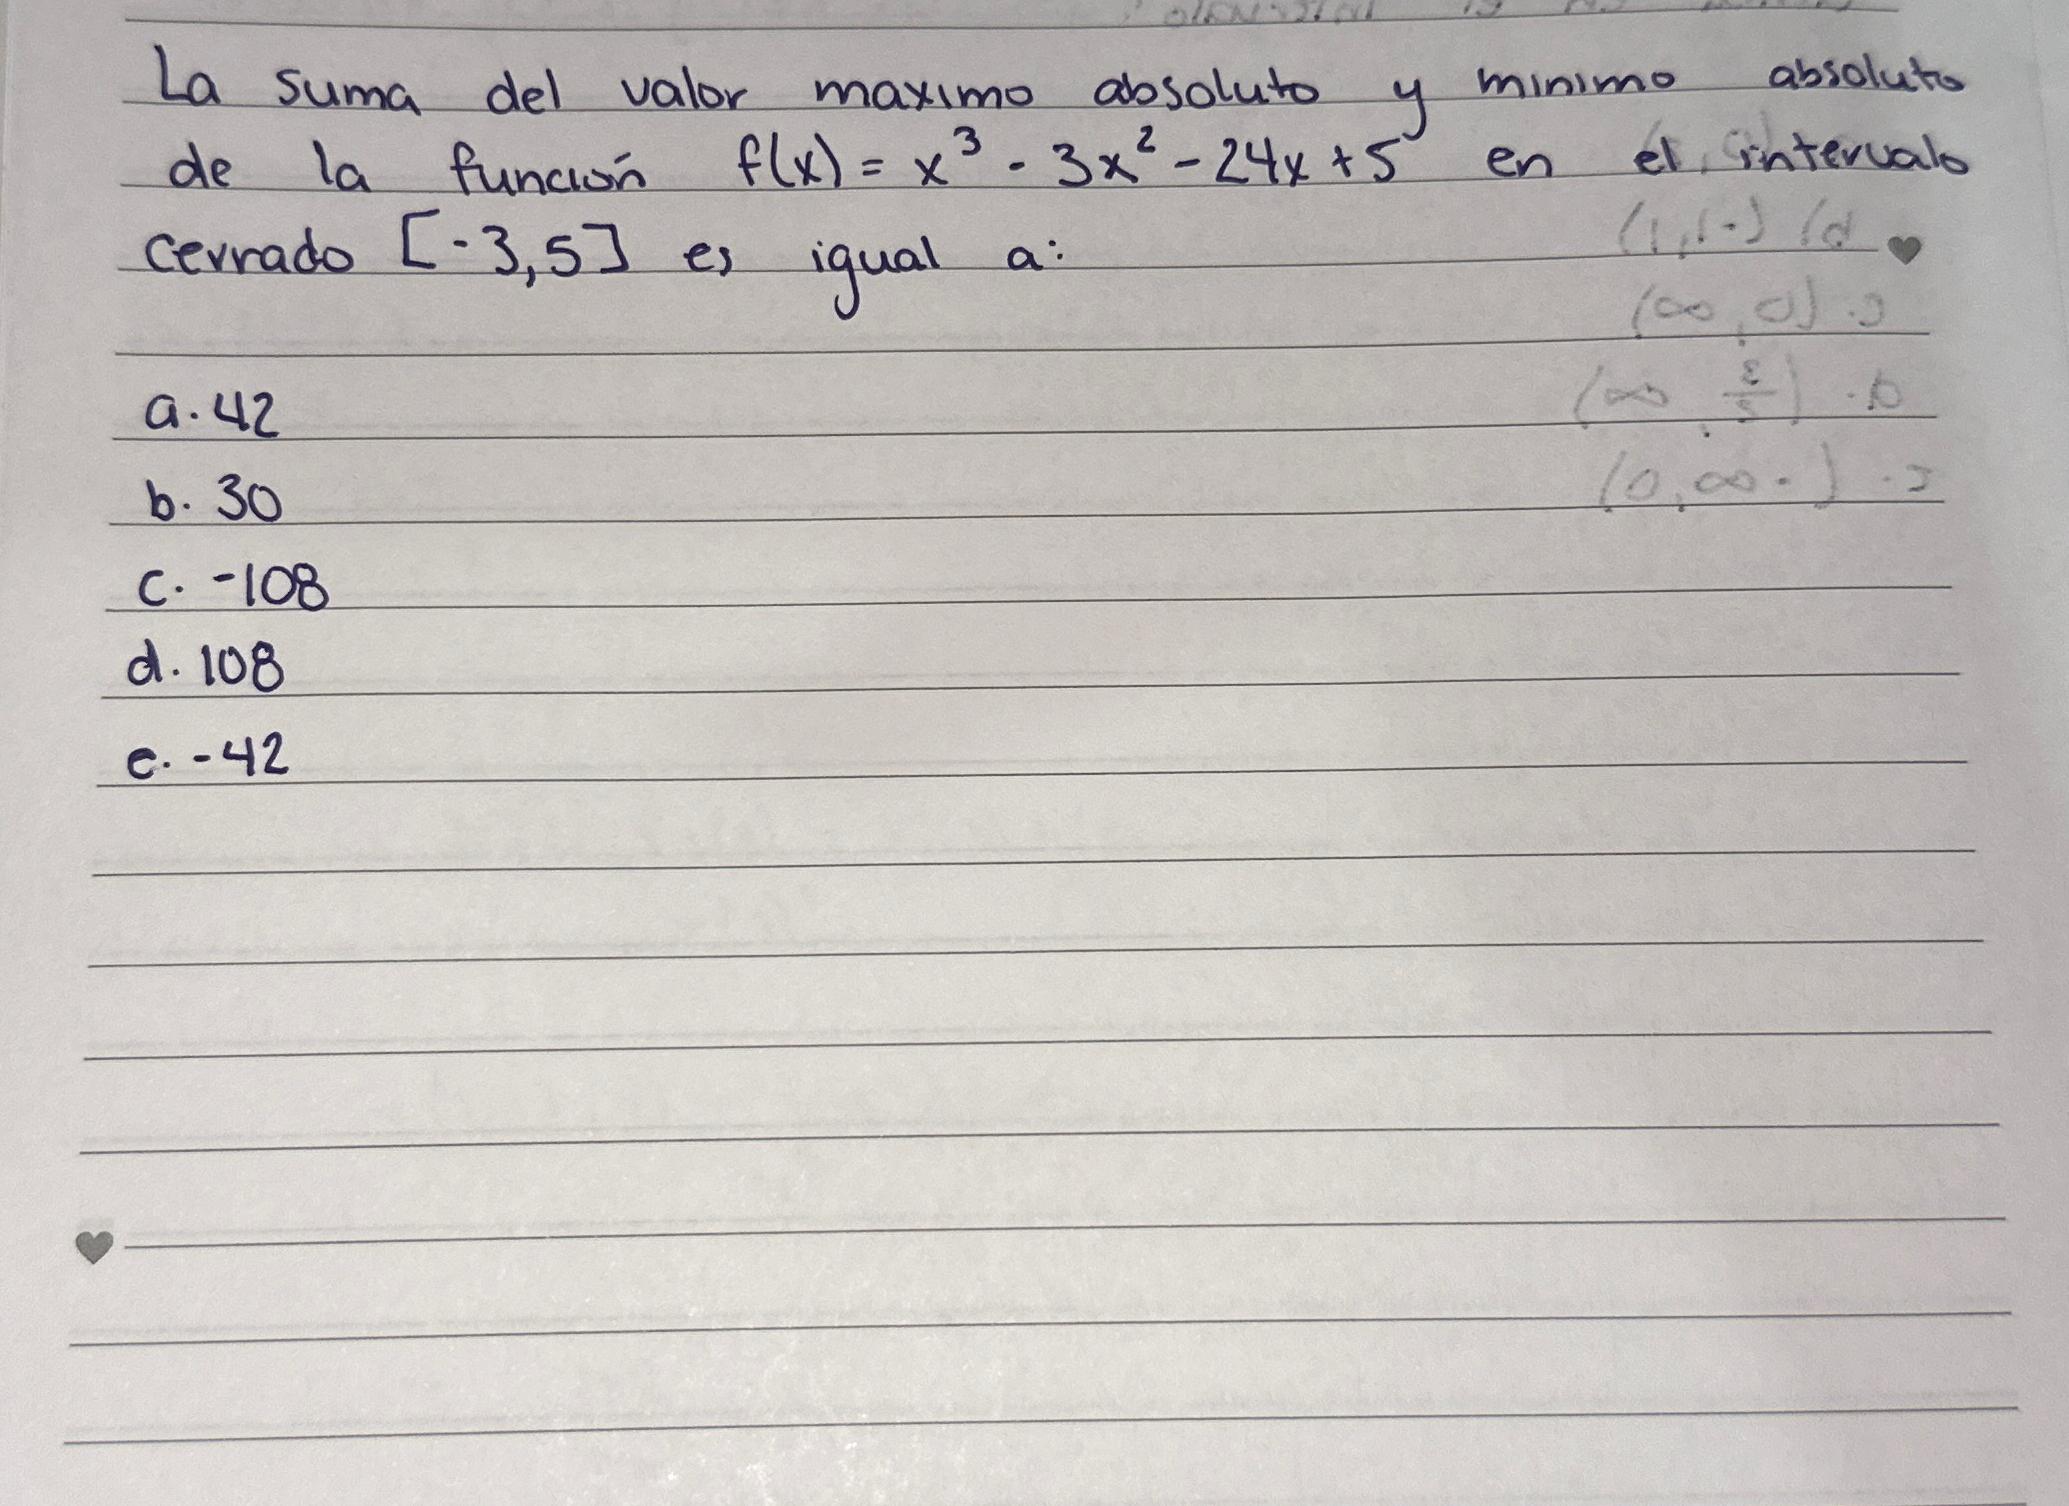 La suma del valor maximo absoluto y minimo absoluto
de la función f(x) = x³ - 3x² - 24x + 5 en el intervalo
cerrado [-3,5] es igual a:
a. 42
b. 30
c. -108
d. 108
e. -42